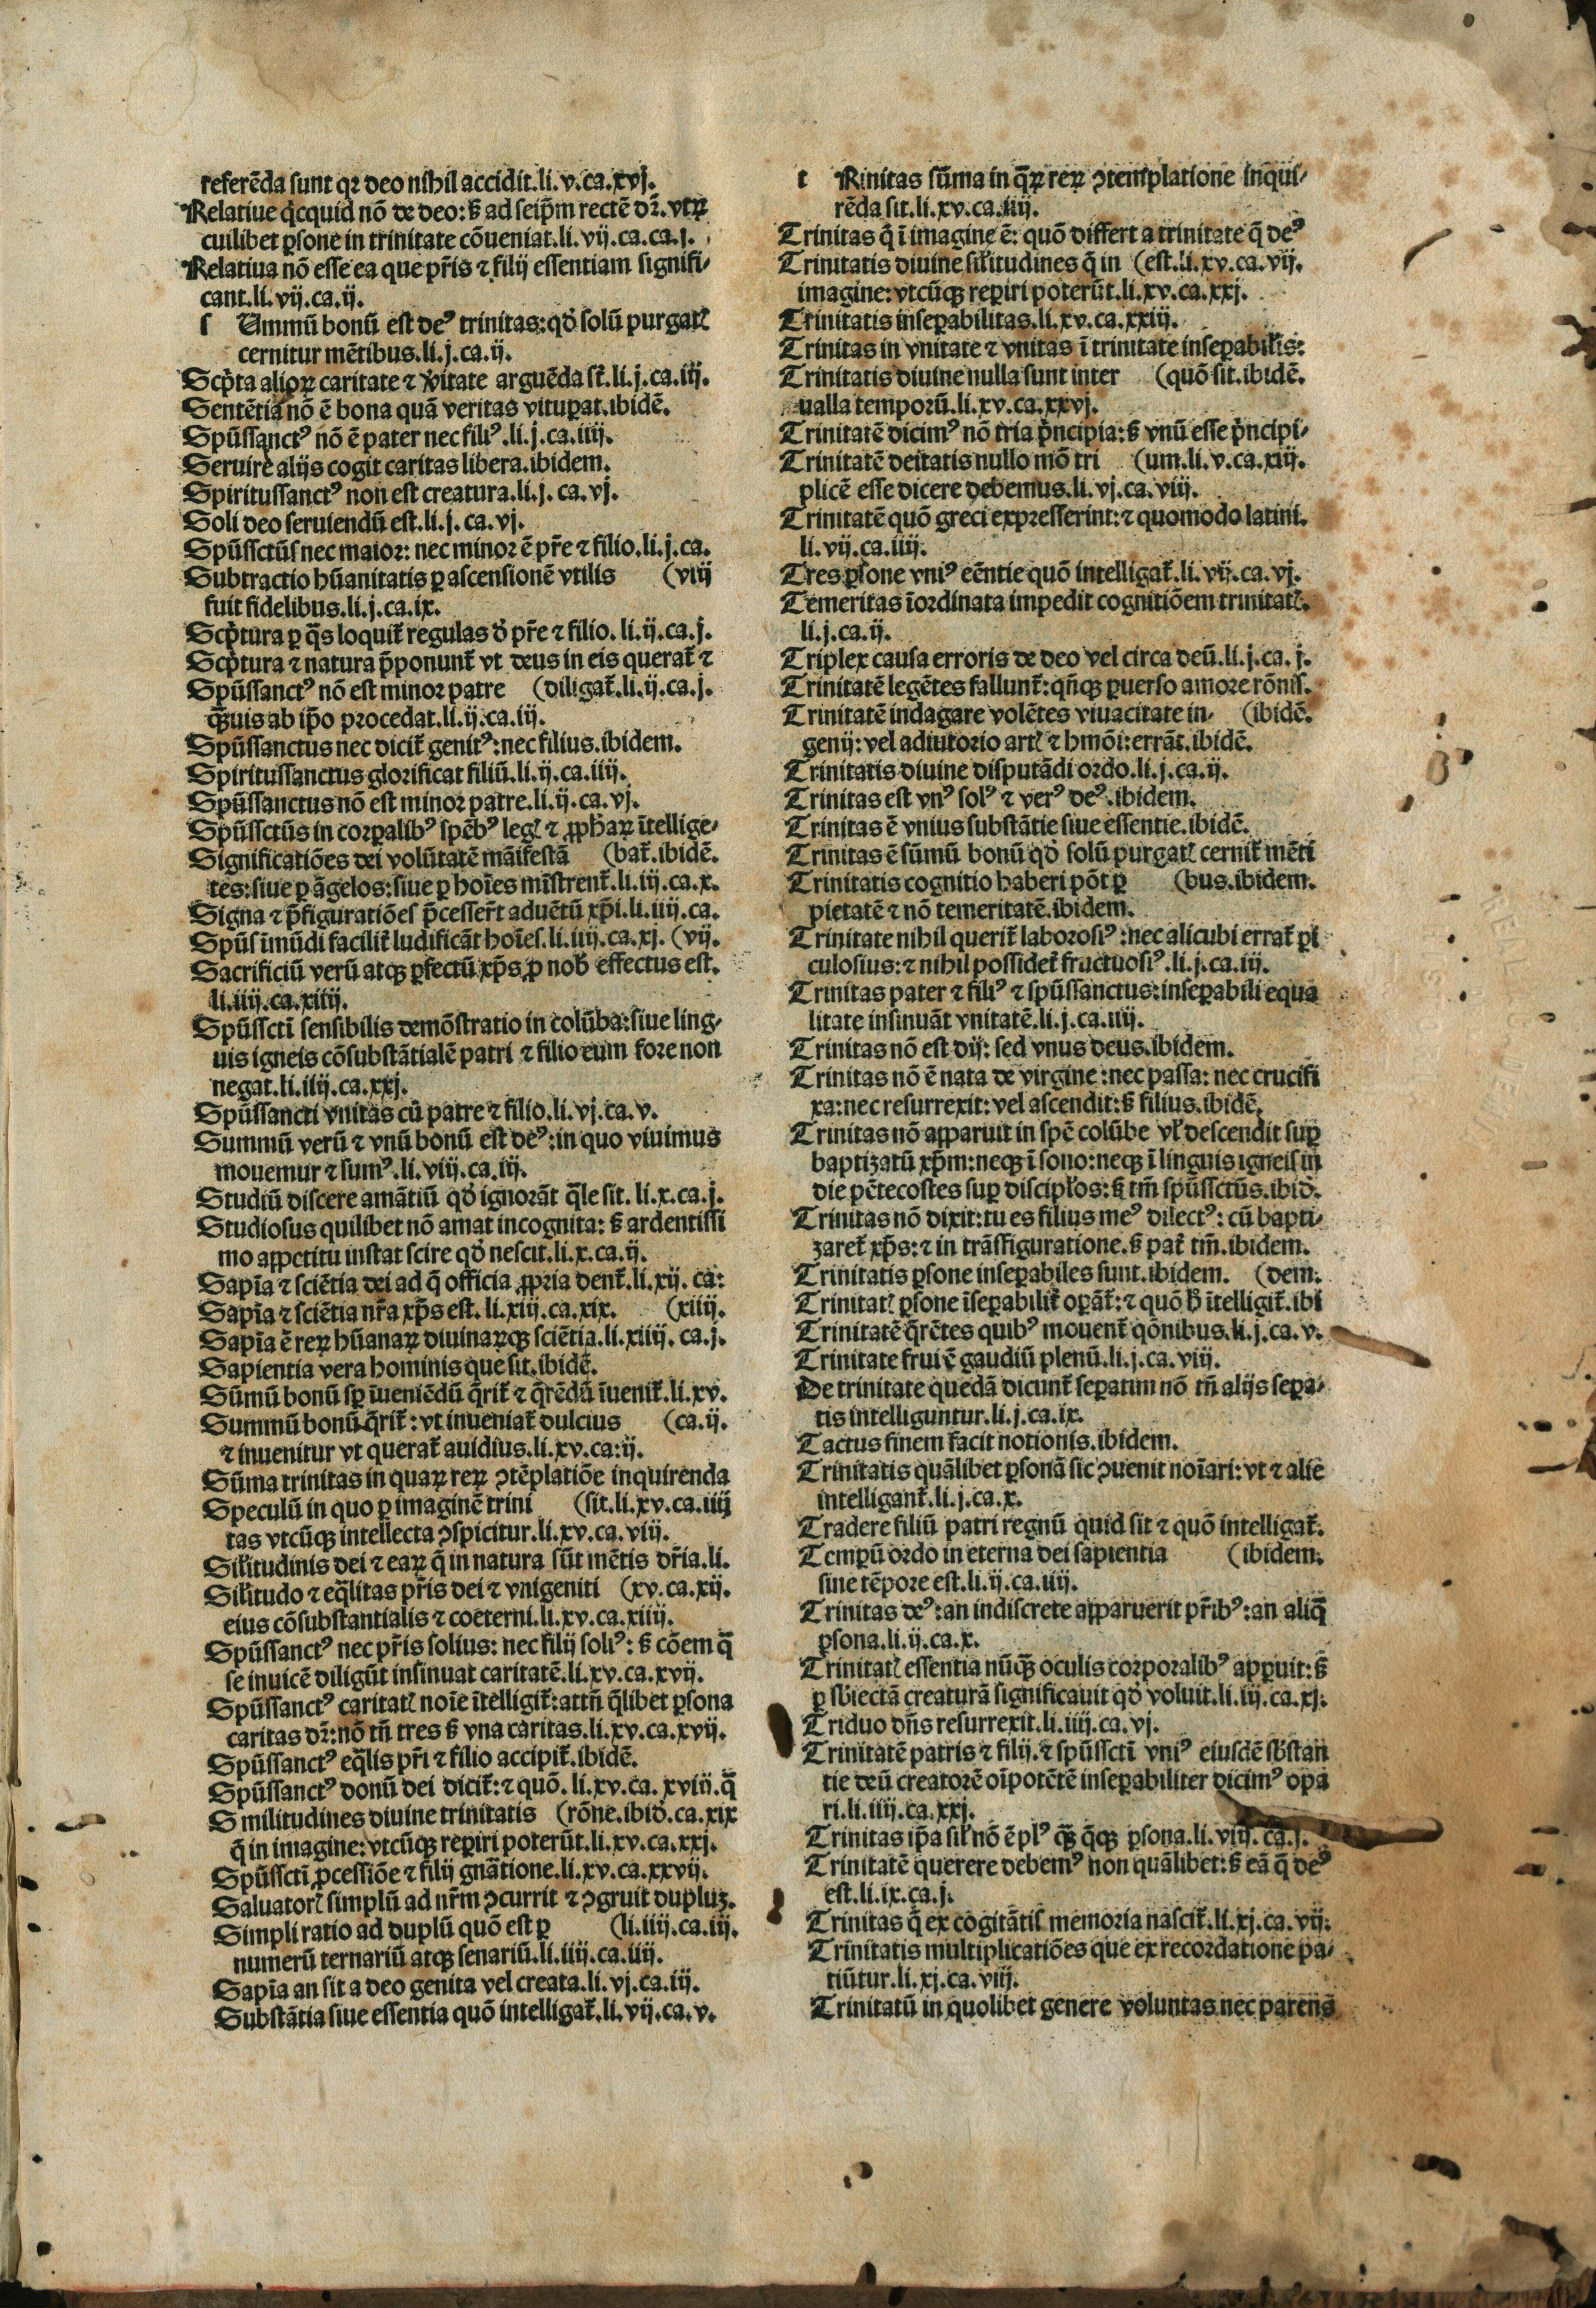 referēda sunt qꝛ deo nihil accidit.li.v.ca.xvj.
Relatiue q̇cquid nō de deo: ꝫ ad seip̄m rectē dr̄. vtꝝ
cuilibet ꝑsone in trinitate cōueniat.li.vij.ca.ca.j.
Relatiua nō esse ea que pr̄is ⁊ filij essentiam signifi⸗
cant.li.vij.ca.ij.
ſ Ummū bonū est deꝰ trinitas: qď solū purgatꝭ
cernitur mētibus.li.j.ca.ij.
Scp̄ta alioꝝ caritate ⁊ v̓itate arguēda st̄.li.j.ca.iij.
Sentētia nō ē bona quā veritas vituꝑat.ibidē.
Spūssanctꝰ nō ē pater nec filiꝰ.li.j.ca.iiij.
Seruire alijs cogit caritas libera.ibidem.
Spiritussanctꝰ non est creatura.li.j.ca.vj.
Soli deo seruiendū est.li.j.ca.vj.
Spūssctūs nec maior: nec minor ē pr̄e ⁊ filio.li.j.ca.
Subtractio hūanitatis ꝑ ascensionē vtilis (viij
fuit fidelibus.li.j.ca.ix.
Scp̄tura ꝑ q̄s loquit̄ regulas ď pr̄e ⁊ filio. li.ij.ca.j.
Scp̄tura ⁊ natura p̄ponunt̄ vt deus in eis querat̄ ⁊
Spūssanctꝰ nō est minor patre (diligat̄.li.ij.ca.j.
q̄ꝫuis ab ip̄o procedat.li.ij.ca.iij.
Spūssanctus nec dicit̄ genitꝰ: nec filius.ibidem.
Spiritussanctus glorificat filiū.li.ij.ca.iiij.
Spūssanctus nō est minor patre.li.ij.ca.vj.
Spūssctūs in corꝑalibꝰ spēbꝰ legꝭ ⁊ ꝓphaꝝ ītellige⸗
Significatiōes dei volūtatē māifestā (bat̄.ibidē.
tes: siue ꝑ āgelos: siue ꝑ hoīes mīstrent̄.li.iij.ca.x.
Signa ⁊ p̄figuratiōes p̄cesser̄t aduētū xp̄i.li.iiij.ca.
Spūs īmūdi facilit̄ ludificāt hoīes.li.iiij.ca.xj. (vij.
Sacrificiū verū atqꝫ ꝑfectū xp̄s ꝓ nob̄ effectus est.
li.iiij.ca.xiiij.
Spūssctī sensibilis demōstratio in colūba: siue ling⸗
uis igneis cōsubstātialē patri ⁊ filio eum fore non
negat.li.iiij.ca.xxj.
Spūssancti vnitas cū patre ⁊ filio.li.vj.ca.v.
Summū verū ⁊ vnū bonū est deꝰ: in quo viuimus
mouemur ⁊ sumꝰ.li.viij.ca.iij.
Studiū discere amātiū qď ignorāt q̄le sit. li.x.ca.j.
Studiosus quilibet nō amat incognita: ꝫ ardentissi
mo appetitu instat scire qď nescit.li.x.ca.ij.
Sapīa ⁊ sciētia dei ad q̄ officia ꝓpria dent̄.li.xij. ca:
Sapīa ⁊ sciētia nr̄a xp̄s est. li.xiij.ca.xix. (xiiij.
Sapīa ē reꝝ hūanaꝝ diuinaꝝqꝫ sciētia.li.xiiij. ca.j.
Sapientia vera hominis que sit.ibidē.
Sūmū bonū sꝑ īueniēdū q̄rit̄ ⁊ q̄rēdū īuenit̄.li.xv.
Summū bonū q̄rit̄: vt inueniat̄ dulcius (ca.ij.
⁊ inuenitur vt querat̄ auidius.li.xv.ca:ij.
Sūma trinitas in quaꝝ reꝝ ꝯtēplatiōe inquirenda
Speculū in quo ꝑ imaginē trini (sit.li.xv.ca.iiij
tas vtcūqꝫ intellecta ꝯspicitur.li.xv.ca.viij.
Siłitudinis dei ⁊ eaꝝ q̄ in natura sūt mētis dr̄ia.li.
Siłitudo ⁊ eq̄litas pr̄is dei ⁊ vnigeniti (xv.ca.xij.
eius cōsubstantialis ⁊ coeterni.li.xv.ca.xiiij.
Spūssanctꝰ nec pr̄is solius: nec filij soliꝰ: ꝫ cōem q̄
se inuicē diligūt insinuat caritatē.li.xv.ca.xvij.
Spūssanctꝰ caritatꝭ noīe ītelligit̄: attn̄ q̄libet ꝑsona
caritas dr̄: nō tn̄ tres ꝫ vna caritas.li.xv.ca.xvij.
Spūssanctꝰ eq̄lis pr̄i ⁊ filio accipit̄.ibidē.
Spūssanctꝰ donū dei dicit̄: ⁊ quō. li.xv.ca. xviij.q̄
S militudines diuine trinitatis (rōne.ibiď.ca.xix
q̄ in imagine: vtcūqꝫ reꝑiri poterūt.li.xv.ca.xxj.
Spūssctī ꝓcessiōe ⁊ filij gnātione.li.xv.ca.xxvij.
Saluatorꝭ simplū ad nr̄m ꝯcurrit ⁊ ꝯgruit dupluꝫ.
Simpli ratio ad duplū quō est ꝑ (li.iiij.ca.iij.
numerū ternariū atqꝫ senariū.li.iiij.ca.iiij.
Sapīa an sit a deo genita vel creata.li.vj.ca.iij.
Substātia siue essentia quō intelligat̄.li.vij.ca.v.
t Rinitas sūma in q̄ꝝ reꝝ ꝯtemplatione inqui⸗
rēda sit.li.xv.ca.iiij.
Trinitas q̄ ī imagine ē: quō differt a trinitate q̄ deꝰ
Trinitatis diuine siłitudines q̄ in (est.li.xv.ca.vij.
imagine: vtcūqꝫ reꝑiri poterūt.li.xv.ca.xxj.
Trinitatis inseꝑabilitas.li.xv.ca.xxiij.
Trinitas in vnitate ⁊ vnitas ī trinitate inseꝑabiłis:
Trinitatis diuine nulla sunt inter (quō sit.ibidē.
ualla temporū.li.xv.ca.xxvj.
Trinitatē dicimꝰ nō tria p̄ncipia: ꝫ vnū esse p̄ncipi⸗
Trinitatē deitatis nullo mō tri (um.li.v.ca.xiij.
plicē esse dicere debemus.li.vj.ca.viij.
Trinitatē quō greci expresserint: ⁊ quomodo latini.
li.vij.ca.iiij.
Tres ꝑsone vniꝰ eēntie quō intelligat̄.li.vij.ca.vj.
Temeritas īordinata impedit cognitiōem trinitatꝭ.
li.j.ca.ij.
Triplex causa erroris de deo vel circa deū.li.j.ca.j.
Trinitatē legētes fallunt̄: qn̄qꝫ ꝑuerso amore rōnis.
Trinitatē indagare volētes viuacitate in⸗ (ibidē.
genij: vel adiutorio artꝭ ⁊ hmōi: errāt.ibidē.
Trinitatis diuine disputādi ordo.li.j.ca.ij.
Trinitas est vnꝰ solꝰ ⁊ verꝰ deꝰ.ibidem.
Trinitas ē vnius substātie siue essentie.ibidē.
Trinitas ē sūmū bonū qď solū purgatꝭ cernit̄ mēti
Trinitatis cognitio haberi pōt ꝑ (bus.ibidem.
pietatē ⁊ nō temeritatē.ibidem.
Trinitate nihil querit̄ laborosiꝰ: nec alicubi errat̄ ꝑi
culosius: ⁊ nihil possidet̄ fructuosiꝰ.li.j.ca.iij.
Trinitas pater ⁊ filiꝰ ⁊ spūssanctus: inseꝑabili equa
litate insinuāt vnitatē.li.j.ca.iiij.
Trinitas nō est dij: sed vnus deus.ibidem.
Trinitas nō ē nata de virgine: nec passa: nec crucifi
xa: nec resurrexit: vel ascendit: ꝫ filius.ibidē.
Trinitas nō apparuit in spē colūbe vł descendit suꝑ
baptizatū xp̄m: neqꝫ ī sono: neqꝫ ī linguis igneis in
die pētecostes suꝑ discipłos: ꝫ tm̄ spūssctūs.ibiď.
Trinitas nō dixit: tu es filius meꝰ dilectꝰ: cū bapti⸗
zaret̄ xp̄s: ⁊ in trāsfiguratione. ꝫ pat̄ tm̄.ibidem.
Trinitatis ꝑsone inseꝑabiles sunt.ibidem. (dem.
Trinitatꝭ ꝑsone īseꝑabilit̄ oꝑāt̄: ⁊ quō h̄ ītelligit̄.ibi
Trinitatē q̄rētes quibꝰ mouent̄ qōnibus.li.j.ca.v.
Trinitate frui ē gaudiū plenū.li.j.ca.viij.
De trinitate quedā dicunt̄ seꝑatim nō tn̄ alijs seꝑa⸗
tis intelliguntur.li.j.ca.ix.
Tactus finem facit notionis.ibidem.
Trinitatis quālibet ꝑsonā sic ꝯuenit noīari: vt ⁊ alie
intelligant̄.li.j.ca.x.
Tradere filiū patri regnū quid sit ⁊ quō intelligat̄.
Temꝑū ordo in eterna dei sapientia (ibidem.
sine tēpore est.li.ij.ca.iiij.
Trinitas deꝰ: an indiscrete apparuerit pr̄ibꝰ: an aliq̄
ꝑsona.li.ij.ca.x.
Trinitatꝭ essentia nūqꝫ oculis corporalibꝰ apꝑuit: ꝫ
ꝑ sb̄iectā creaturā significauit qď voluit.li.iij.ca.xj.
Triduo dn̄s resurrexit.li.iiij.ca.vj.
Trinitatē patris ⁊ filij. ⁊ spūssctī vniꝰ eiusdē sb̄stan
tie deū creatorē oīpotētē inseꝑabiliter dicimꝰ oꝑa
ri.li.iiij.ca.xxj.
Trinitas ip̄a sił nō ē plꝰ q̄ꝫ q̄qꝫ ꝑsona.li.viij.ca.j.
Trinitatē querere debemꝰ non quālibet: ꝫ eā q̄ deꝰ
est.li.ix.ca.j.
Trinitas q̄ ex cogitātis memoria nascit̄.li.xj.ca.vij.
Trinitatis multiplicatiōes que ex recordatione pa⸗
tiūtur.li.xj.ca.viij.
Trinitatū in quolibet genere voluntas nec parens